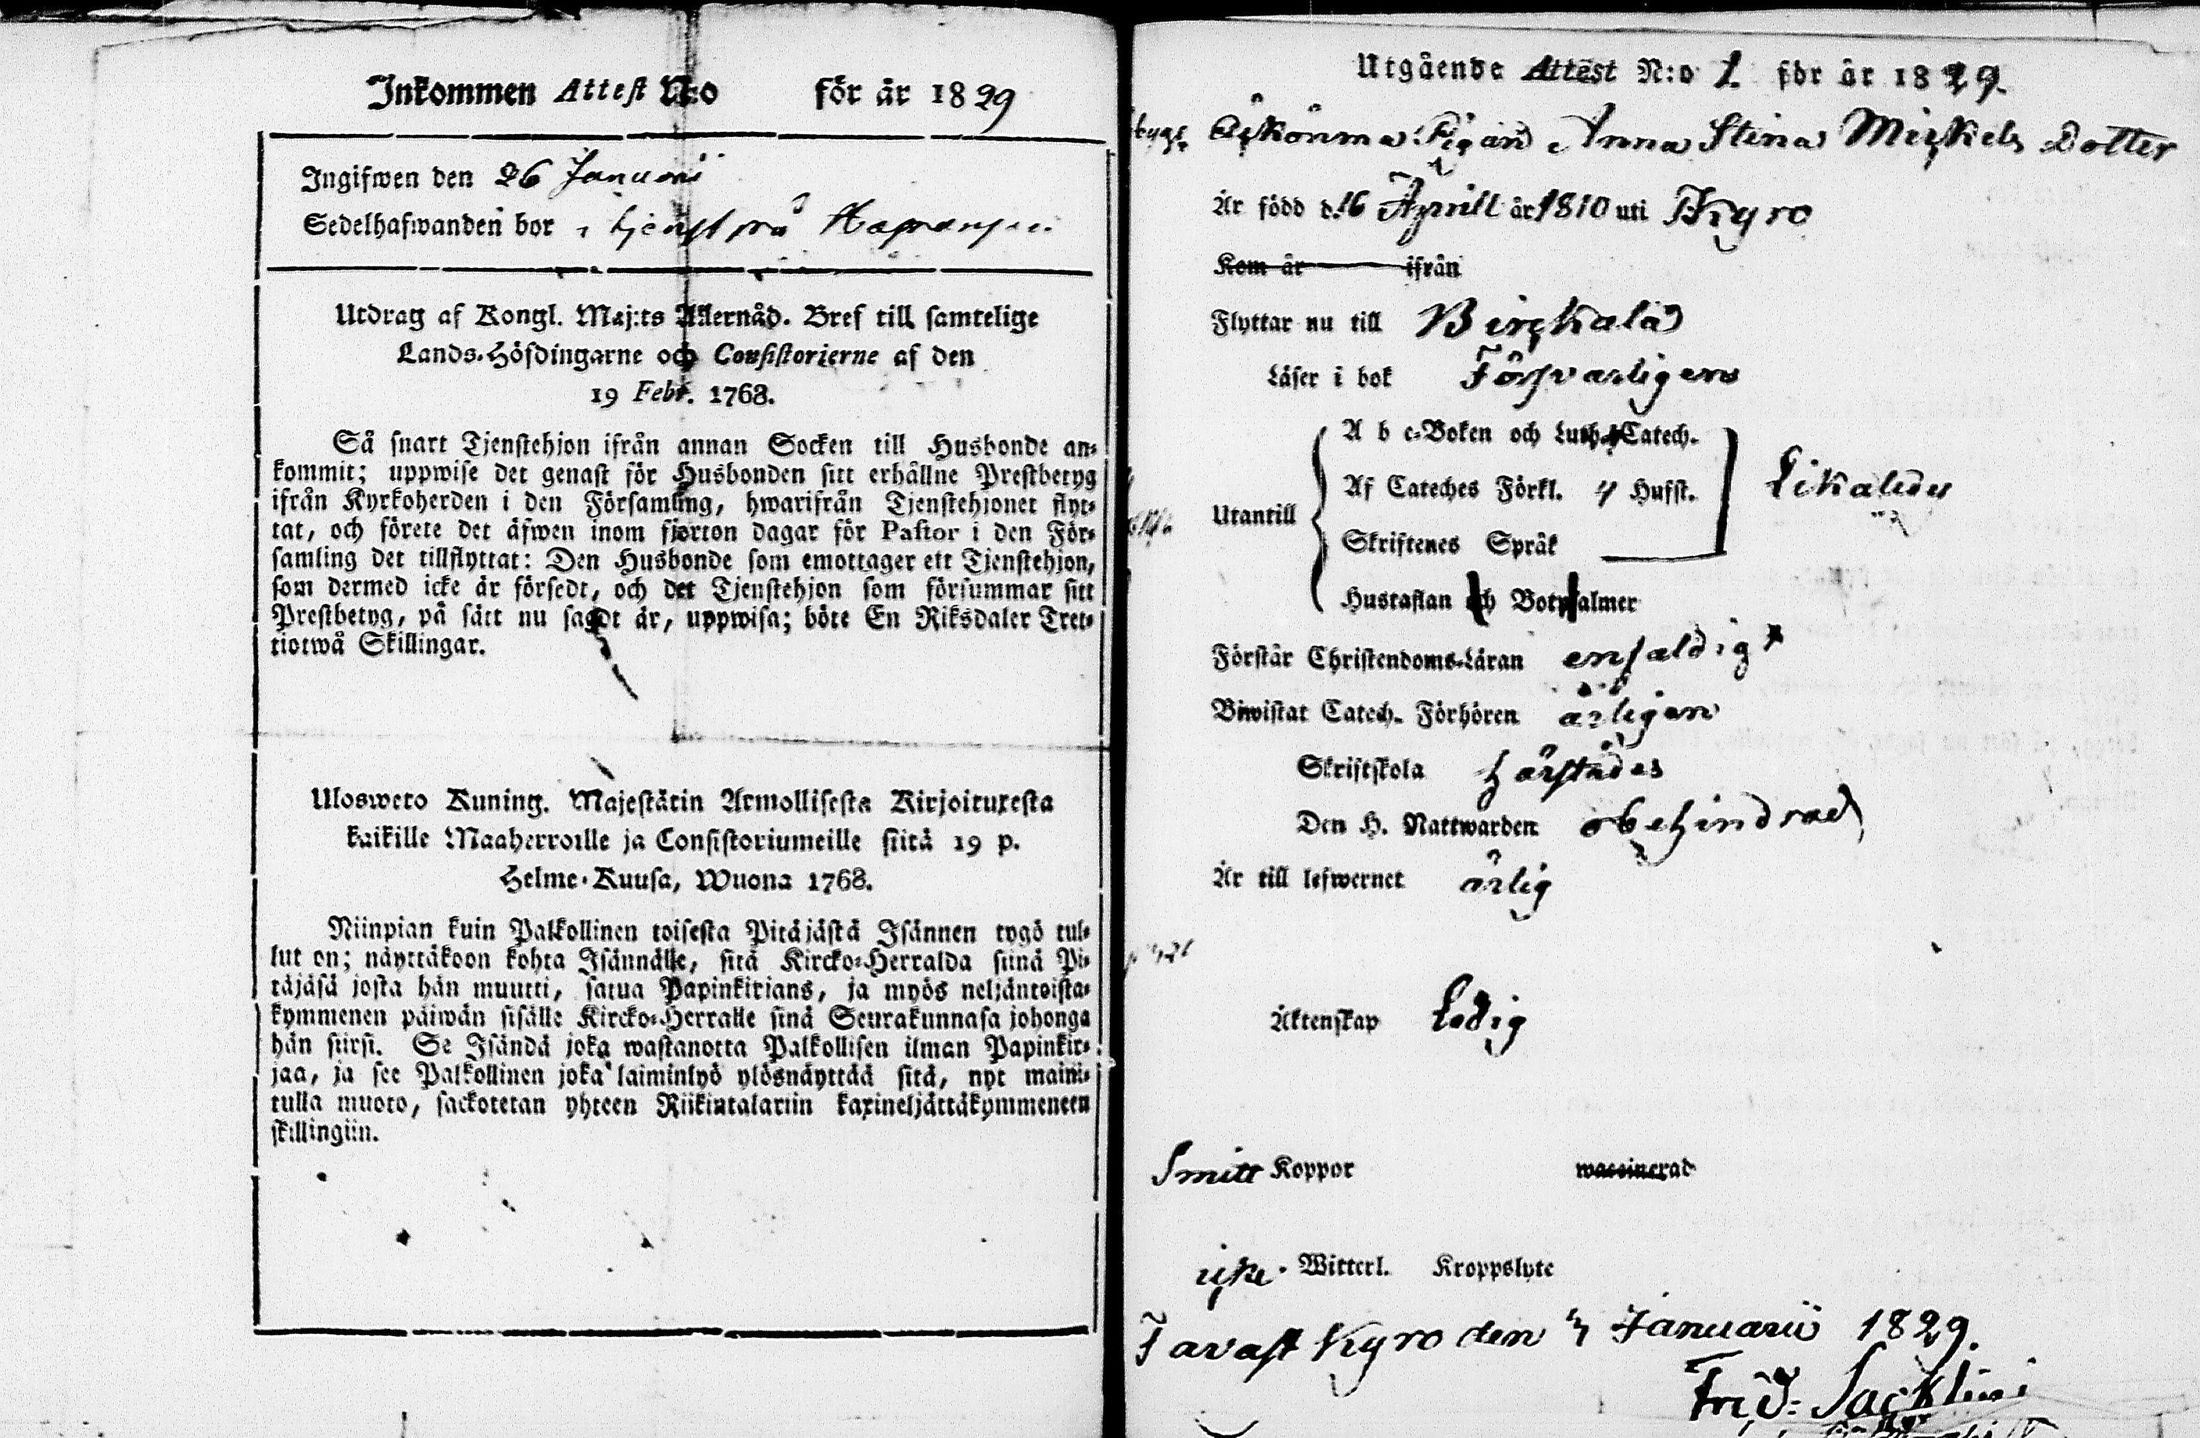 Inkommen Attest N:o för år 1829
Ingifwen den 26 Januarii
Sedelhafwanden bor i tjenst på
Utdrag af Kongl. Maj:ts Allernåd. Bref till samtelige
Lands-Höfdingarne och Consistorierne af den
19 Febr. 1768.
Så snart Tjenstehjon ifrån annan Socken till Husbonde an-
kommit; uppwise det genast för Husbonden sitt erhållne Prestbetyg
ifrån Kyrkoherden i den Församling, hwarifrån Tjenstehjonet flyt-
tat, och förete det äfwen inom fjorton dagar för Pastor i den För-
samling det tillflyttat: Den Husbonde som emottager ett Tjenstehjon,
som dermed icke är försedt, och det Tjenstehjon som försummar sitt
Prestbetyg, på sätt nu sagdt är, uppwisa; böte En Riksdaler Tret-
tiotwå Skillingar.
Ulosweto Kuning. Majestätin Armollisesta Kirjoituxesta
kaikille Maaherroille ja Consistoriumeille siitä 19 p.
Helme-Kuusa, Wuona 1768.
Niinpian kuin Palkollinen toisesta Pitäjästä Isännen tygö tul-
lut on; näyttäkoon kohta Isännälle, sitä Kircko-Herralda siinä Pi-
täjäsä josta hän muutti, satua Papinkirjans, ja myös neljäntoista-
kymmenen päiwän sisälle Kircko-Herralle sinä Seurakunnasa johonga
hän siirsi. Se Isändä joka wastanotta Palkollisen ilman Papinkir-
jaa, ja see Palkollinen joka laiminlyö ylösnäyttää sitä, nyt maini-
tulla muoto, sackotetan yhteen Riikintalariin kaxineljättäkymmeneen
skillingiin.
Utgående Attest N:o 1. för år 1829.
Pigan Anna Stina Mickels Dotter
Är född d. 16 Aprill år 1810 uti Kyro
Kom år ifrån
Flyttar nu till Birckala
Läser i bok Försvarligen
A b c-Boken och Luth. Catech.
Af Cateches Förkl. 4 Hufst. Likaledes
Utantill
Skriftenes Språk
Hustaflan och Botpsalmer
Förstår Christendoms-Läran enfaldigt
Biwistat Catech. Förhören årligen
Skriftskola härstädes
Den H. Nattwarden obehindrad
Är till lefwernet ärlig
Äktenskap Ledig
Smitt Koppor waccinerad
icke Witterl. Kroppslyte
Tavast Kyro den 4 Januarii 1829.
Frid: Sacklini